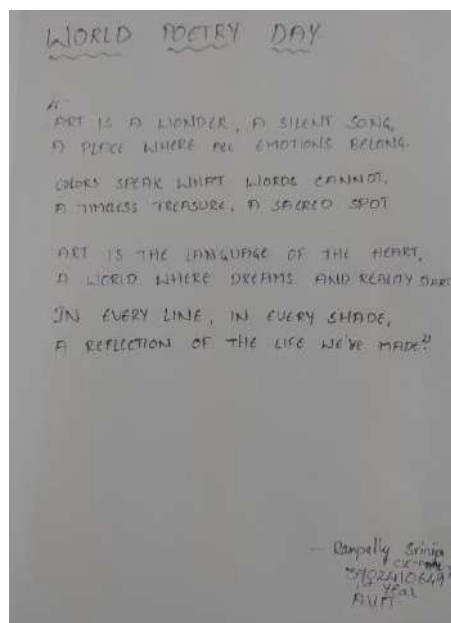 WORLD POETRY DAY
"ART IS A WONDER, A SILENT SONG,
A PLACE WHERE ALL EMOTIONS BELONG.
COLORS SPEAK WHAT WORDS CANNOT,
A TIMELESS TREASURE, A SACRED SPOT
ART IS THE LANGUAGE OF THE HEART,
A WORLD WHERE DREAMS AND REALITY
IN EVERY LINE, IN EVERY SHADE,
A REFLECTION OF THE LIFE WE'VE MADE."
- Rampally Srinija
year
AVIT